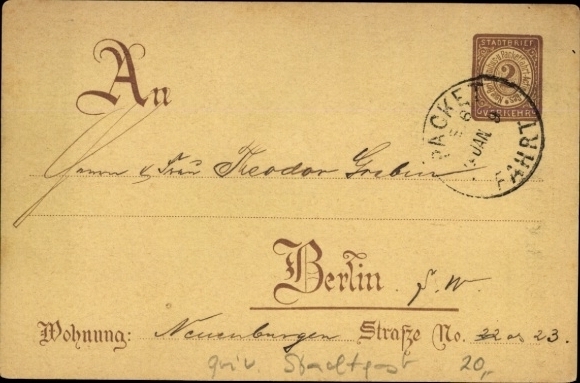 An
STADTBRIEF
2
VERKEHR
PACKET
FAHRT
JAN
Herrn & Frau Theodor Greben
Berlin S.W.
Wohnung: Neuenburger Straße No. 22 as 23.
priv. Stadtpost 20,-